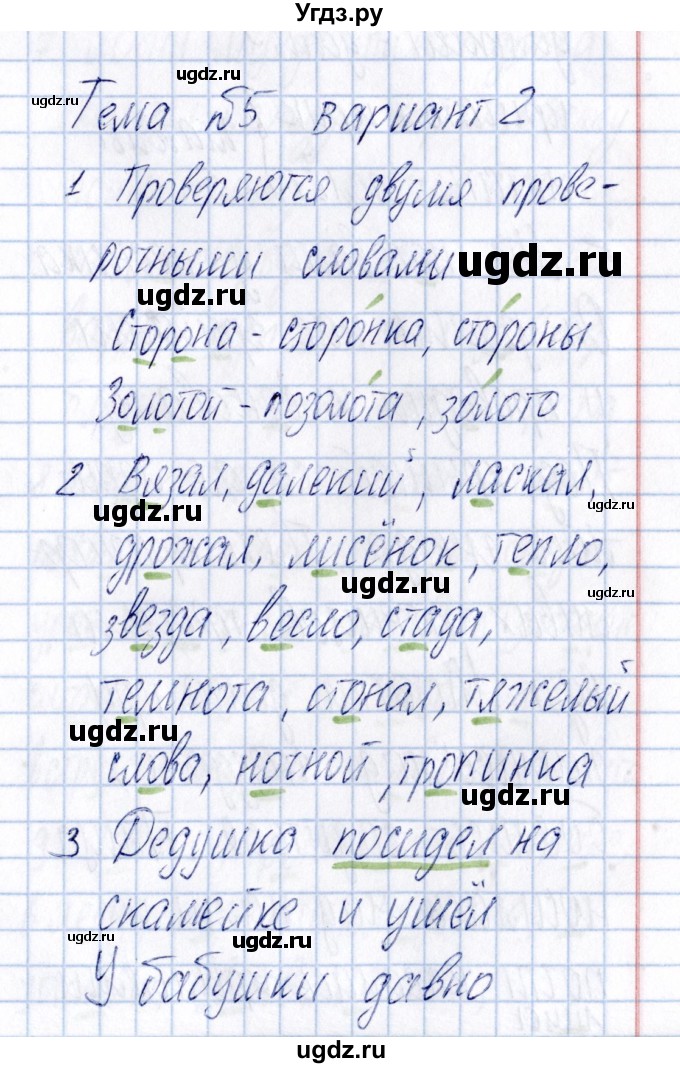 Угдз.ру
ugdz.ru
ugdz.ru
Тема №5 вариант 2
1 Проверяются двумя прове-
рочными словами
ugdz.ru
ugdz.ru
Сторона - сторо́нка, сто́роны
Золотой - позоло́та, зо́лото
2 Вязал, далекий, ласкал,
ugdz.ru
ugdz.ru
дрожал, лисёнок, тепло,
ugdz.ru
ugdz.ru
звезда, весло, стада,
темнота, стонал, тяжелый
ugdz.ru
слова, ночной, тропинка
ugdz.ru
3 Дедушка посидел на
скамейке и ушёл
ugdz.ru
ugdz.ru
У бабушки давно
ugdz.ru